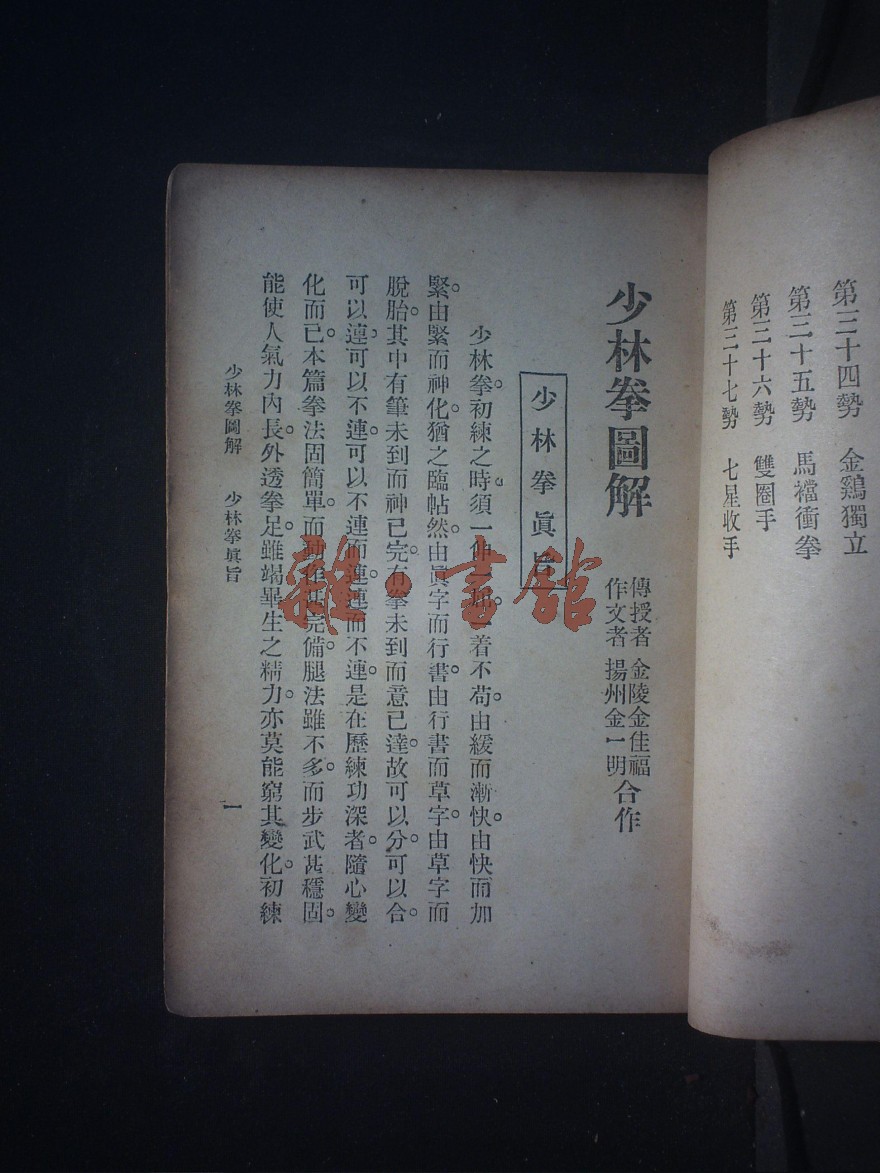 第三十四勢 金鷄獨立
第三十五勢 馬襠衝拳
第三十六勢 雙圈手
第三十七勢 七星收手
少林拳圖解
傳授者 金陵金佳福
作文者 揚州金一明
合作
少林拳眞旨
少林拳。初練之時。須一伸一 着不苟。由緩而漸快。由快而加
緊。由緊而神化。猶之臨帖然。由眞字而行書。由行書而草字。由草字而
脫胎。其中有筆未到而神已完。有拳未到而意已達。故可以分。可以合。
可以連。可以不連。可以不連而連。連而不連。是在歷練功深者。隨心變
化而已。本篇拳法固簡單。而 完備。腿法雖不多。而步武甚穩固。
能使人氣力內長。外透拳足。雖竭畢生之精力。亦莫能窮其變化。初練
少林拳圖解 少林拳眞旨
一
雜·書館